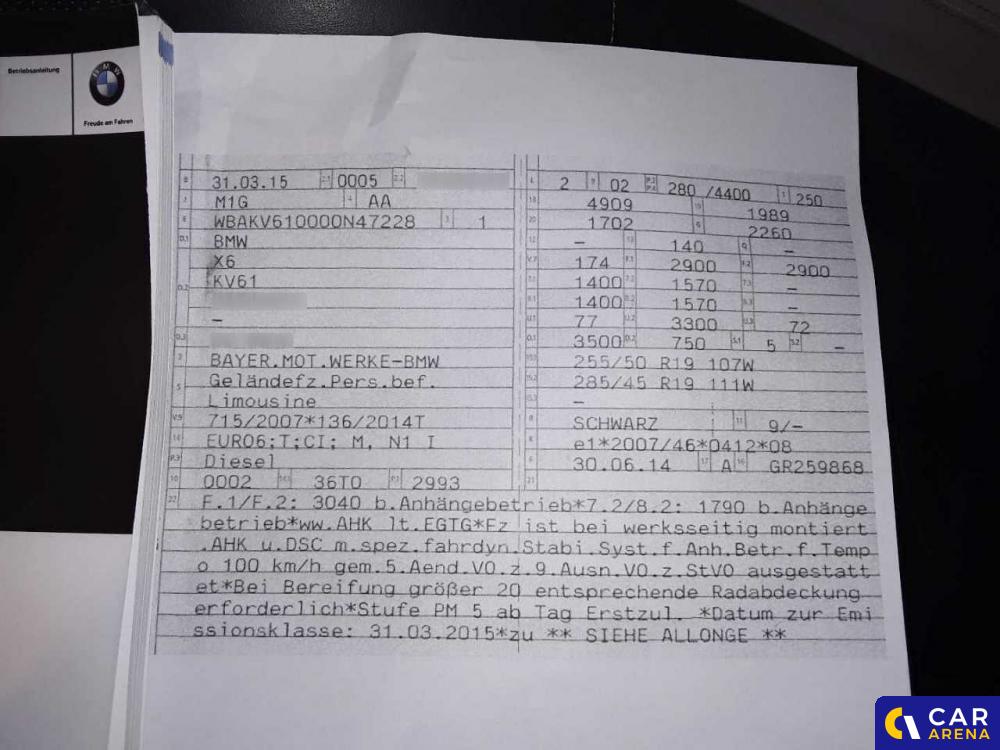 Betriebsanleitung
BMW
Freude am Fahren
B 31.03.15 2.1 0005 2.2
J M1G 4 AA
E WBAKV610000N47228 3 1
D.1 BMW
X6
D.2 KV61
–
D.3
2 BAYER.MOT.WERKE-BMW
5 Geländefz.Pers.bef.
Limousine
V.9 715/2007*136/2014T
14 EURO6;T;CI; M, N1 I
P.3 Diesel
10 0002 14.1 36T0 P.1 2993
L 2 9 02 P.2 P.4 280 /4400 T 250
18 4909 19 1989
20 1702 G 2260
12 – 13 140 Q –
V.7 174 F.1 2900 F.2 2900
7.1 1400 7.2 1570 7.3 –
8.1 1400 8.2 1570 8.3 –
U.1 77 U.2 3300 U.3 72
O.1 3500 O.2 750 S.1 5 S.2 –
15.1 255/50 R19 107W
15.2 285/45 R19 111W
15.3 –
R SCHWARZ 11 9/–
K e1*2007/46*0412*08
6 30.06.14 17 A 16 GR259868
21
22 F.1/F.2: 3040 b.Anhängebetrieb*7.2/8.2: 1790 b.Anhänge
betrieb*ww.AHK lt.EGTG*Fz ist bei werksseitig montiert
.AHK u.DSC m.spez.fahrdyn.Stabi.Syst.f.Anh.Betr.f.Temp
o 100 km/h gem.5.Aend.VO.z.9.Ausn.VO.z.StVO ausgestatt
et*Bei Bereifung größer 20 entsprechende Radabdeckung
erforderlich*Stufe PM 5 ab Tag Erstzul. *Datum zur Emi
ssionsklasse: 31.03.2015*zu ** SIEHE ALLONGE **
CAR
ARENA